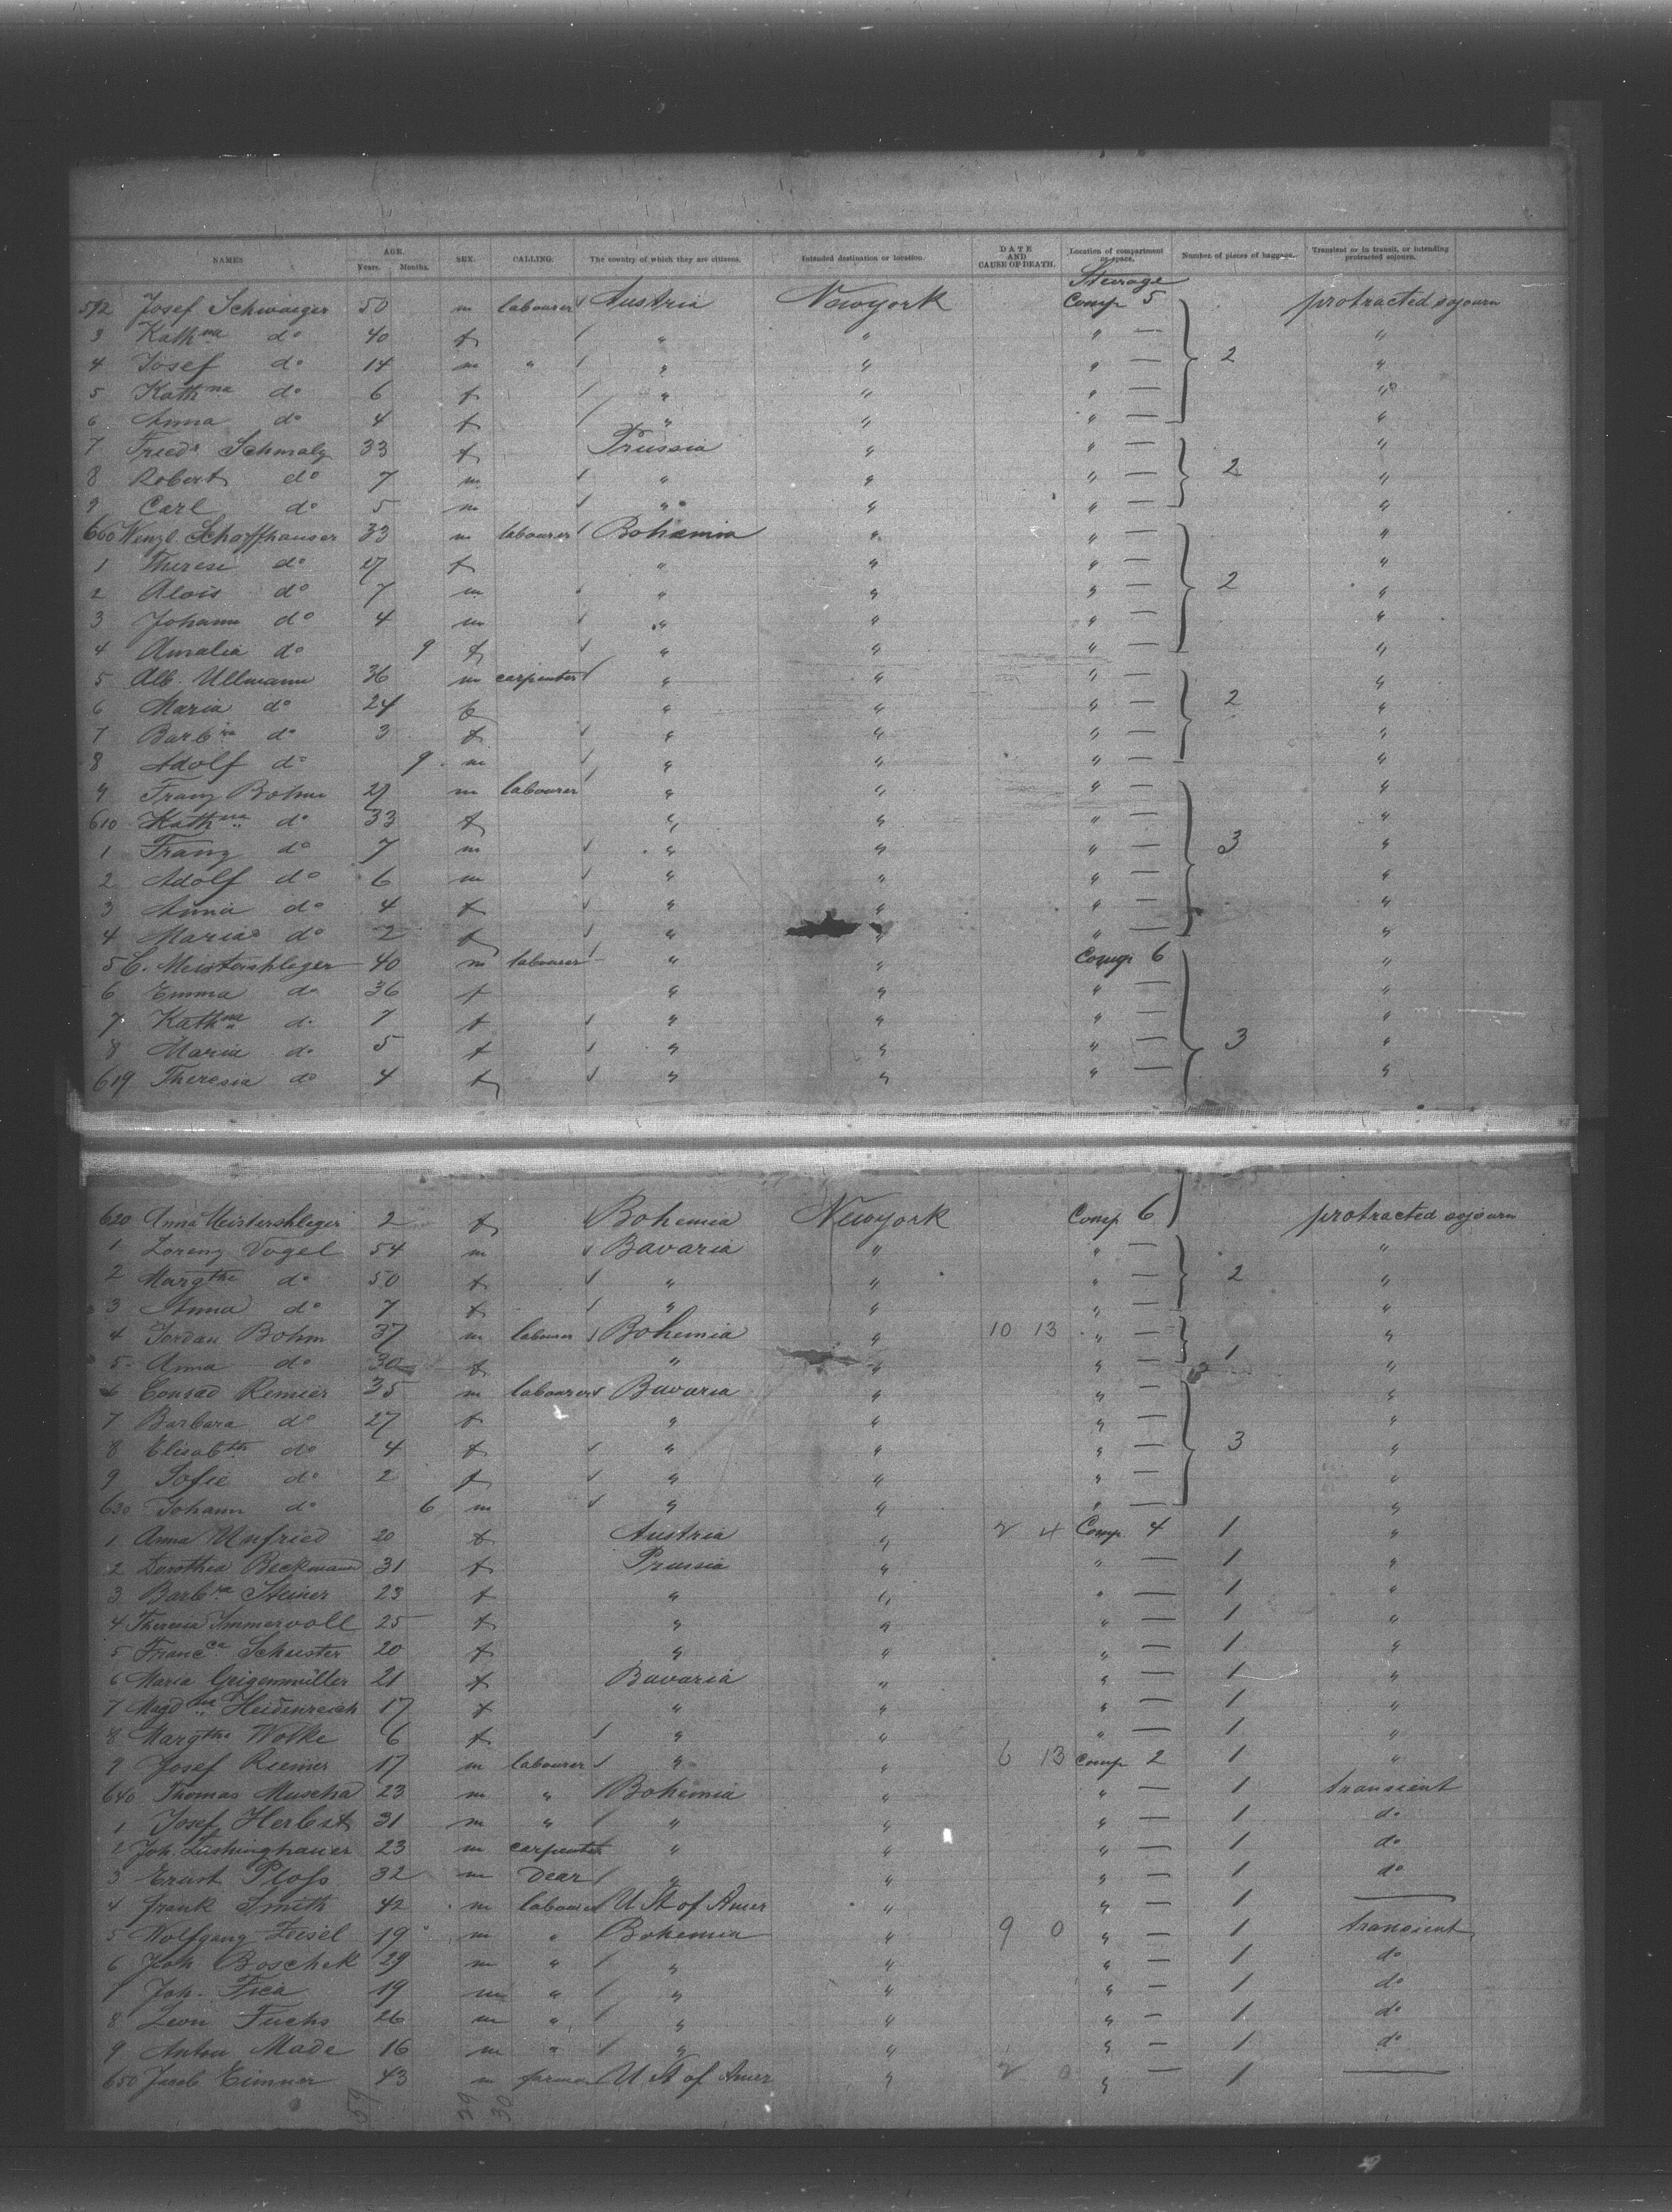 NAMES AGE. Years. Months. SEX. CALLING. The country of which they are citizens. Intended destination or location. DATE AND CAUSE OF DEATH. Location of compartment or space. Number of pieces of baggage. Transient or in transit, or intending protracted sojourn.
Steerage
592 Josef Schwaiger 50 m labourer Austria Newyork Comp 5 protracted sojourn
3 Kathna do 40 f " " " — "
4 Josef do 14 m " " " " — 2 "
5 Kathna do 6 f " " " — "
6 Anna do 4 f " " " — "
7 Fried. Schmalz 33 f Prussia " " — "
8 Robert do 7 m " " " — 2 "
9 Carl do 5 m " " " — "
600 Wenzl Schaffhauser 33 m labourer Bohemia " " — "
1 Therese do 27 f " " " — "
2 Alois do 7 m " " " — 2 "
3 Johann do 4 m " " " — "
4 Amalia do 9 f " " " — "
5 Alb. Ullmann 36 m carpenter " " " — "
6 Maria do 24 f " " " — 2 "
7 Barbra do 3 f " " " — "
8 Adolf do 9 m " " " — "
9 Franz Bohm 27 m labourer " " " — "
610 Kathna do 33 f " " " — "
1 Franz do 7 m " " " — 3 "
2 Adolf do 6 m " " " — "
3 Anna do 4 f " " " — "
4 Maria do 2 f " " " — "
5 C. Meistershleger 40 m labourer " " Comp 6 "
6 Emma do 36 f " " " — "
7 Kathna do 7 f " " " — "
8 Maria do 5 f " " " — 3 "
619 Theresia do 4 f " " " — "
620 Anna Meistershleger 2 f Bohemia Newyork Comp 6 protracted sojourn
1 Lorenz Vogel 54 m Bavaria " " — "
2 Margthe do 50 f " " " — 2 "
3 Anna do 7 f " " " — "
4 Jordan Bohm 37 m labourer Bohemia " 10 13 " — "
5 Anna do 30 f " " " — 1 "
6 Conrad Remier 35 m labourer Bavaria " " — "
7 Barbara do 27 f " " " — "
8 Elisabth do 4 f " " " — 3 "
9 Sofie do 2 f " " " — "
630 Johann do 6 m " " " — "
1 Anna Unfried 20 f Austria " 2 4 Comp 4 1 "
2 Dorothea Beckmann 31 f Prussia " " — 1 "
3 Barbra Steiner 23 f " " " — 1 "
4 Theresia Immervoll 25 f " " " — 1 "
5 Francca Schuster 20 f " " " — 1 "
6 Maria Geigenmüller 21 f Bavaria " " — 1 "
7 Magdna Heidenreich 17 f " " " — 1 "
8 Margthe Wolke 6 f " " " — 1 "
9 Josef Riemer 17 m labourer " " 6 13 Comp 2 1 "
640 Thomas Muscha 23 m " Bohemia " " — 1 transient
1 Josef Herbst 31 m " " " " — 1 do
2 Joh. 23 m carpenter " " " — 1 do
3 Ernst Ploss 32 m " " " — 1 do
4 Frank Smith 42 m labourer U St of Amer " " — 1 —
5 Wolfgang Zeisel 19 m " Bohemia " 9 0 " — 1 transient
6 Joh Boschek 29 m " " " " — 1 do
7 Joh. Fica 19 m " " " " — 1 do
8 Leon Fuchs 26 m " " " " — 1 do
9 Anton Made 16 m " " " " — 1 do
650 Jacob 43 m farmer U St of Amer " 2 0 " — 1 —
59 29 30